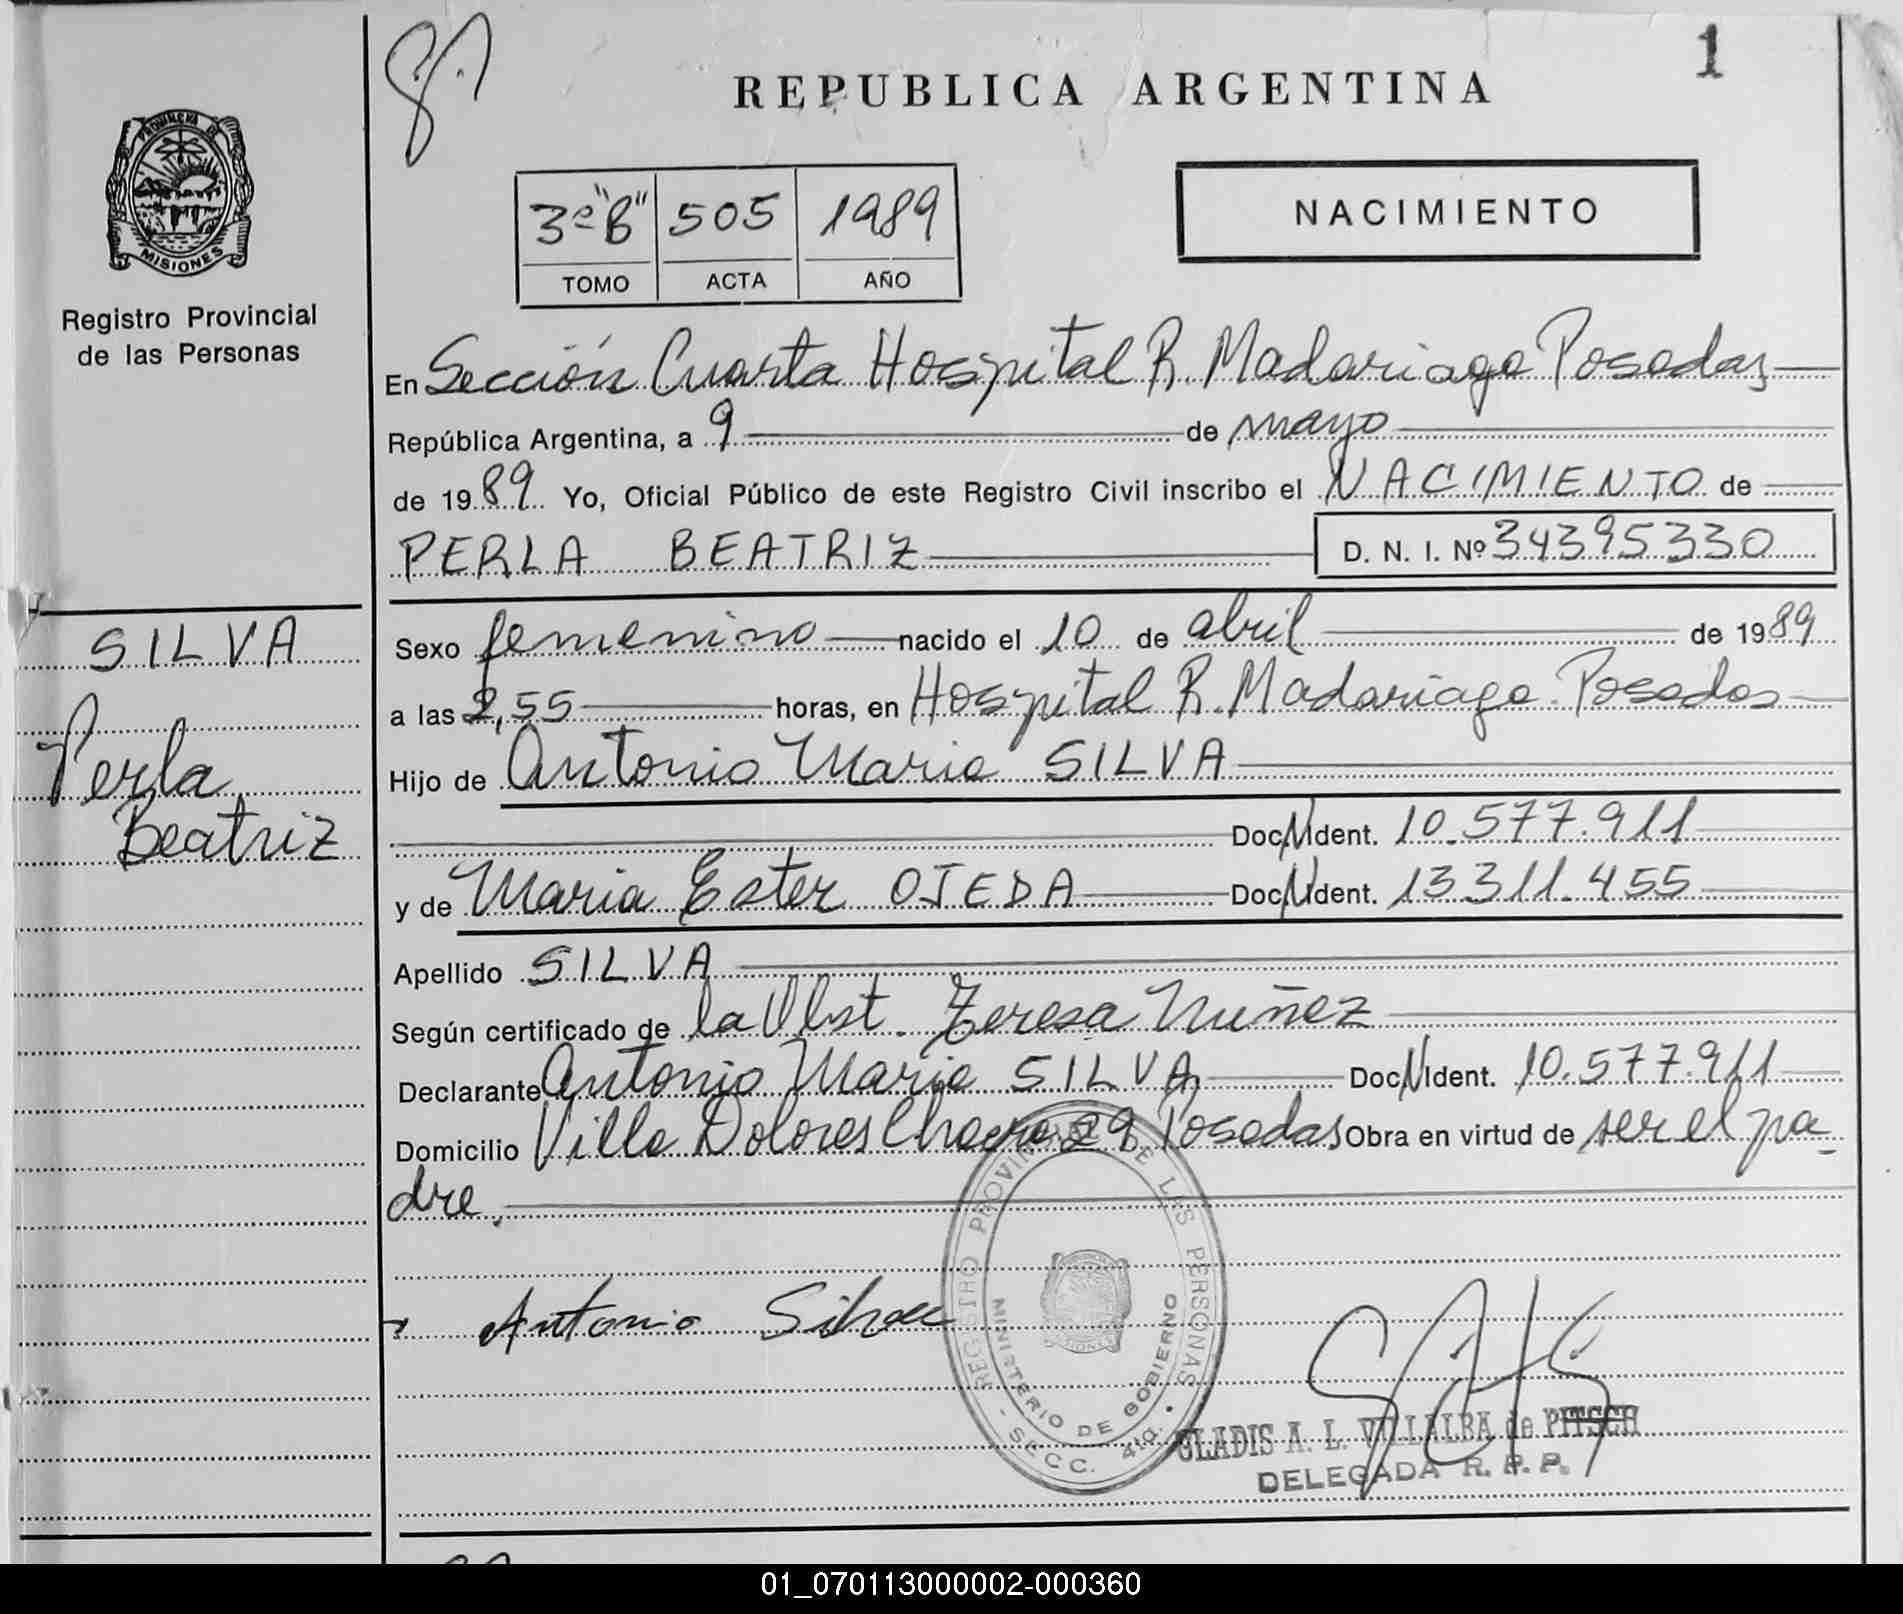 87
REPUBLICA ARGENTINA
1
PROVINCIA DE
MISIONES
Registro Provincial
de las Personas
3º "B" 505 1989
TOMO ACTA AÑO
NACIMIENTO
En Sección Cuarta Hospital R. Madariaga Posadas
República Argentina, a 9 de mayo
de 1989 Yo, Oficial Público de este Registro Civil inscribo el NACIMIENTO de
PERLA BEATRIZ D. N. I. Nº 34395330
SILVA
Perla
Beatriz
Sexo femenino nacido el 10 de abril de 1989
a las 2,55 horas, en Hospital R. Madariaga. Posadas
Hijo de Antonio Maria SILVA
Doc. N Ident. 10.577.911
y de Maria Ester OJEDA Doc. N Ident. 13.311.455
Apellido SILVA
Según certificado de la Obst. Teresa Nuñez
Declarante Antonio Maria SILVA Doc. N Ident. 10.577.911
Domicilio Villa Dolores Chacra 29 Posadas Obra en virtud de ser el pa-
dre.
Antonio Silva
REGISTRO PROVINCIAL DE LAS PERSONAS
MINISTERIO DE GOBIERNO
- SECC. 4ta. -
GLADIS A. L. VILLALBA de PITSCH
DELEGADA R. P. P.
01_070113000002-000360